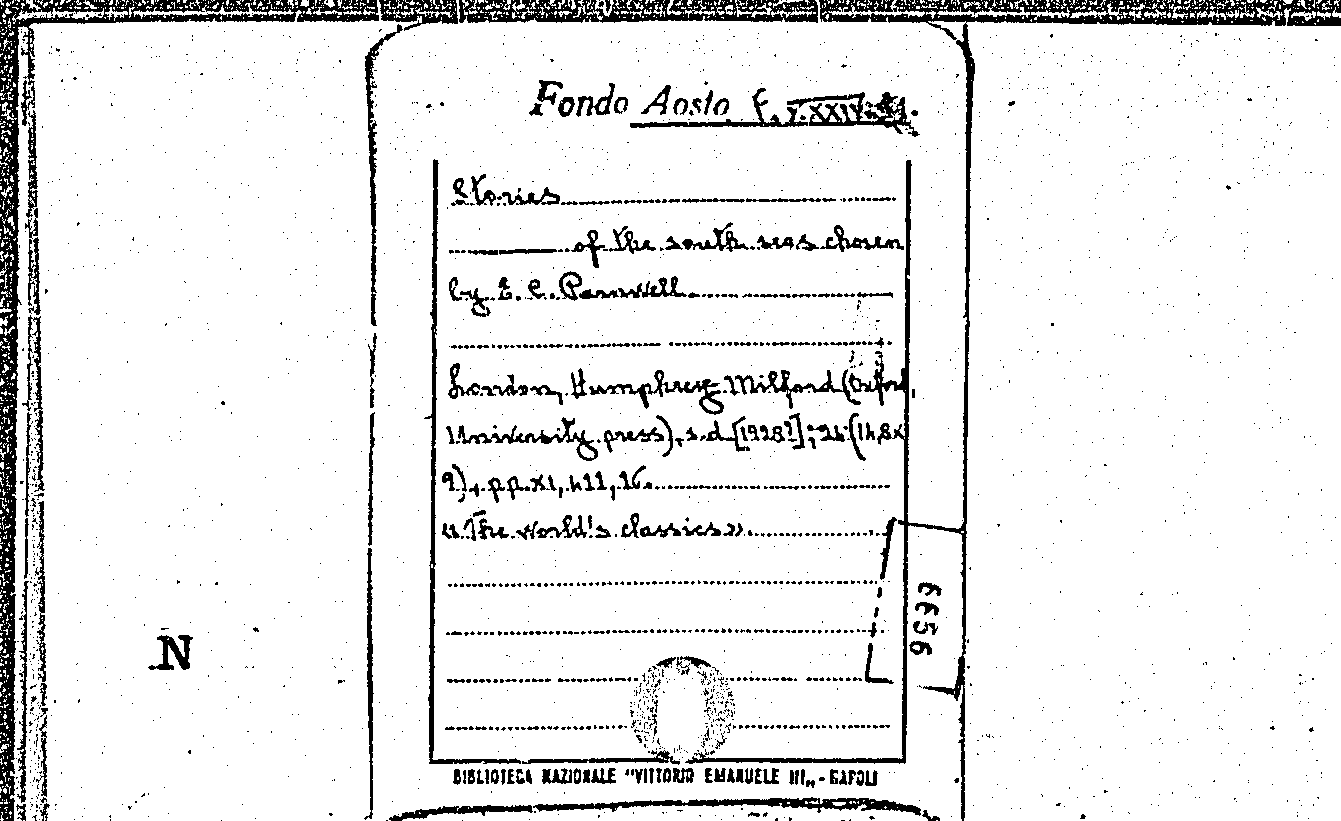 Fondo Aosta F.
Stories
of the south seas chosen
by E. C. Parnwell.
London, Humphrey Milford (Oxford,
University press), s.d. [1928?]; 24 (14,8x
9), pp. XI, 411, 16.
«The world's classics».
6656
N
BIBLIOTECA NAZIONALE "VITTORIO EMANUELE III„ - NAPOLI